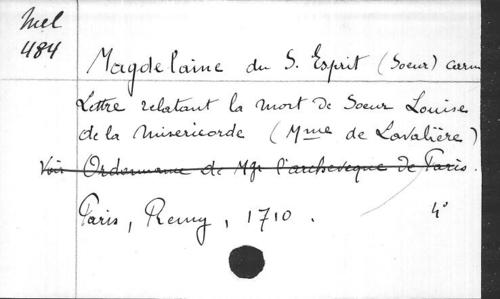 Mel
484
Magdelaine du S. Esprit (Soeur) carm
Lettre relatant la mort de Soeur Louise
de la Misericorde (Mme de Lavalière)
Voir Ordonnance de Mgr l'archeveque de Paris.
Paris, Remy, 1710. 4°